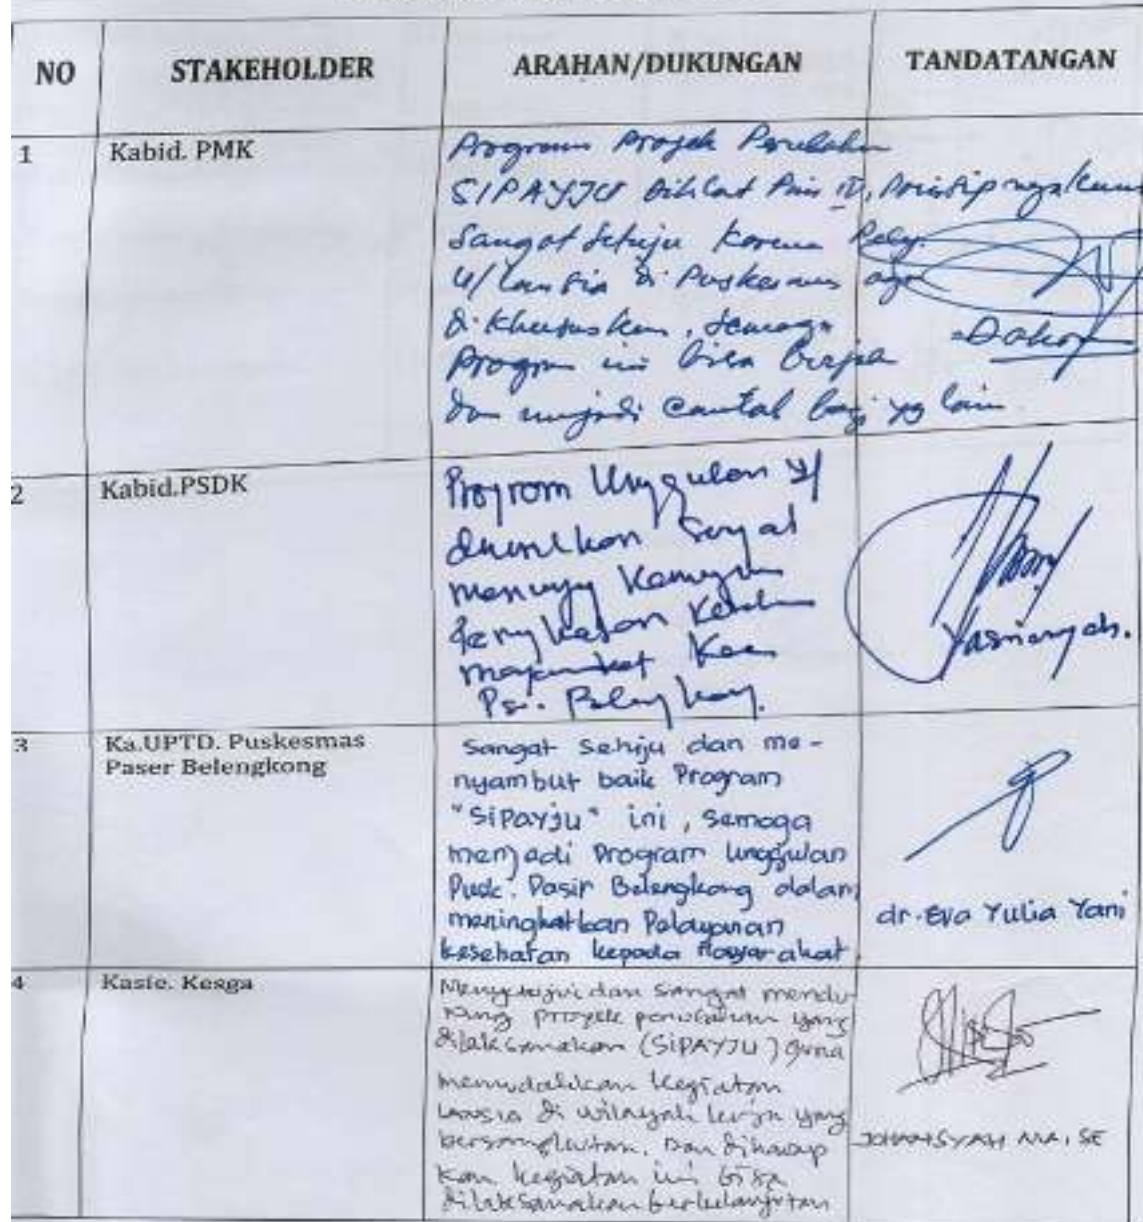 NO STAKEHOLDER ARAHAN/DUKUNGAN TANDATANGAN
1 Kabid. PMK
Program Proyek Perubahan
SIPAYJU dilihat dari
Sangat Setuju Karena Pely.
u/ Lansia di Puskesmas agar
di Khususkan, Semoga
Program ini bisa
dan menjadi Contoh bagi yg lain
2 Kabid.PSDK
Program Unggulan
menuju
Peningkatan
masyarakat Kec
Psr. Belengkong.
Yasniansyah.
3 Ka.UPTD. Puskesmas
Paser Belengkong
Sangat Setuju dan me-
nyambut baik Program
"SiPAYJU" ini, Semoga
menjadi Program Unggulan
Pusk. Pasir Belengkong dalam
meningkatkan Pelayanan
kesehatan kepada Masyarakat
dr. Eva Yulia Yani
4 Kasie. Kesga
Menyetujui dan Sangat mendu-
kung proyek perubahan yang
dilaksanakan (SIPAYJU) guna
memudahkan kegiatan
Lansia di wilayah kerja yang
bersangkutan. Dan diharap
kan kegiatan ini bisa
dilaksanakan berkelanjutan
JOHANSYAH MA, SE